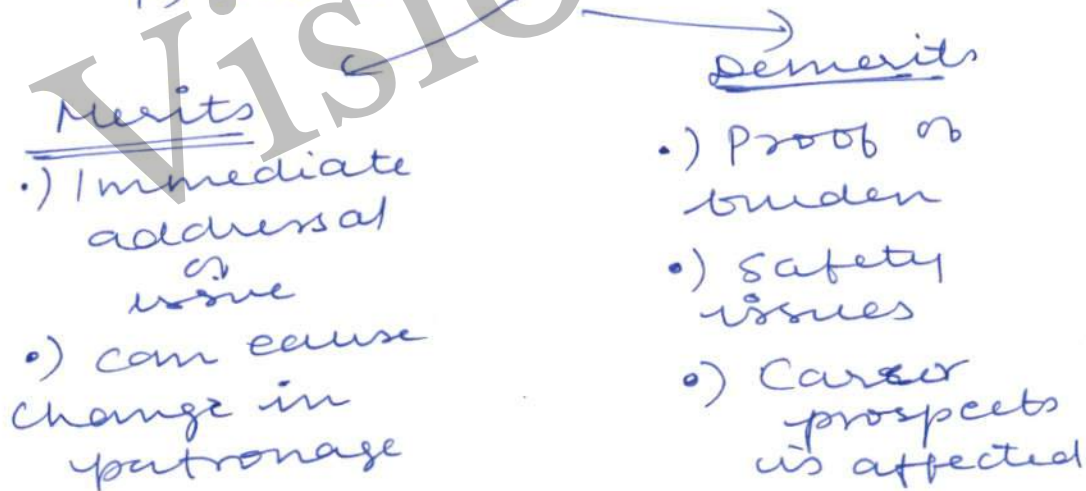 Merits
•) Immediate
addressal
of
issue
•) can cause
change in
patronage
Demerits
•) Proof of
burden
•) Safety
issues
•) Career
prospects
is affected